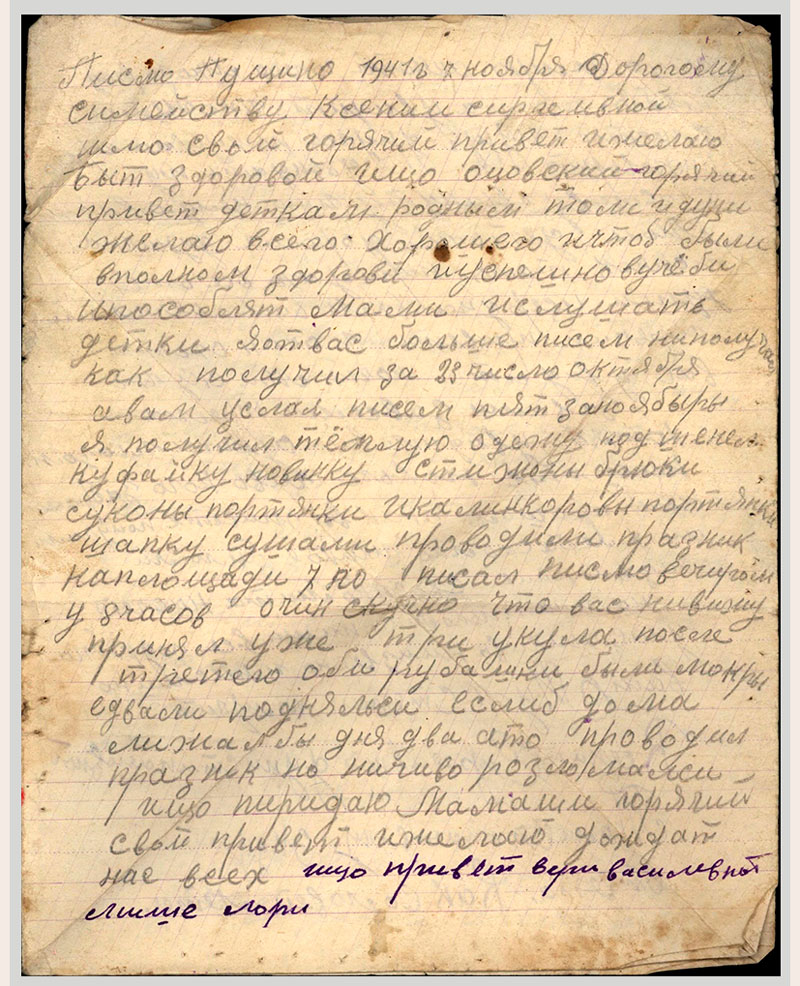 Писмо Пущино 1941г 7 ноября Дорогому
симейству Ксении сиргеивной
шлю свой горячий привет ижелаю
быт здоровой ищо оцовский горячий
привет деткам родным толи идуси
желаю всего хорошего ичтоб были
вполном здорови иуспешно вучёби
ипособлят Мами ислушать
детки яотвас больше писем ниполучал
как получил за 23 число октября
авам услал писем пят заноябыры
я получил тёплую одежу под шенел
куфайку новинку стижоны брюки
суконы портянки икалинкоровы портянки
шапку сушами проводили празник
наплощади 7 но писал писмо вечиром
у 8 часов очин скучно что вас нивижу
принял уже три укула после
третего оби рубашки были мокры
едвали подняльси еслиб дома
лижал бы дня два ато проводил
празник но ничиво розломалси
ищо пиридаю Мамаши горячий
свой привет ижелаю дождат
нас всех ищо привет вери василевной
мише лори